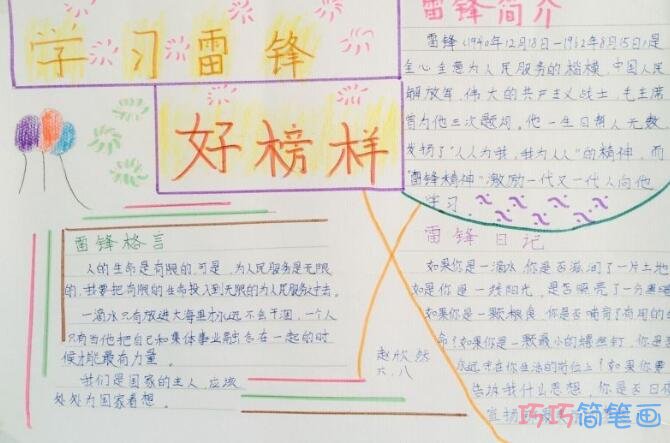 学习雷锋
好榜样
雷锋简介
雷锋(1940年12月18日-1962年8月15日)是
全心全意为人民服务的楷模,中国人民
解放军,伟大的共产主义战士,毛主席
曾为他三次题词。他一生日帮人无数
发扬了"人人为我,我为人人"的精神,而
"雷锋精神"激励一代又一代人向他
学习。
雷锋格言
人的生命是有限的,可是,为人民服务是无限
的,我要把有限的生命投入到无限的为人民服务中去。
一滴水只有放进大海里才永远不会干涸,一个人
只有当他把自己和集体事业融合在一起的时
候才能最有力量。
我们是国家的主人,应该
处处为国家着想。
雷锋日记
如果你是一滴水,你是否滋润了一片土地
如果你是一线阳光,是否照亮了一分黑暗
如果你是一颗粮食,你是否哺育了有用的生
命?如果你是一颗最小的螺丝钉,你是否
永远守在你生活的岗位上?如果你要
告诉我什么思想,你是否日夜
宣扬
赵欣然
六.八
巧巧简笔画